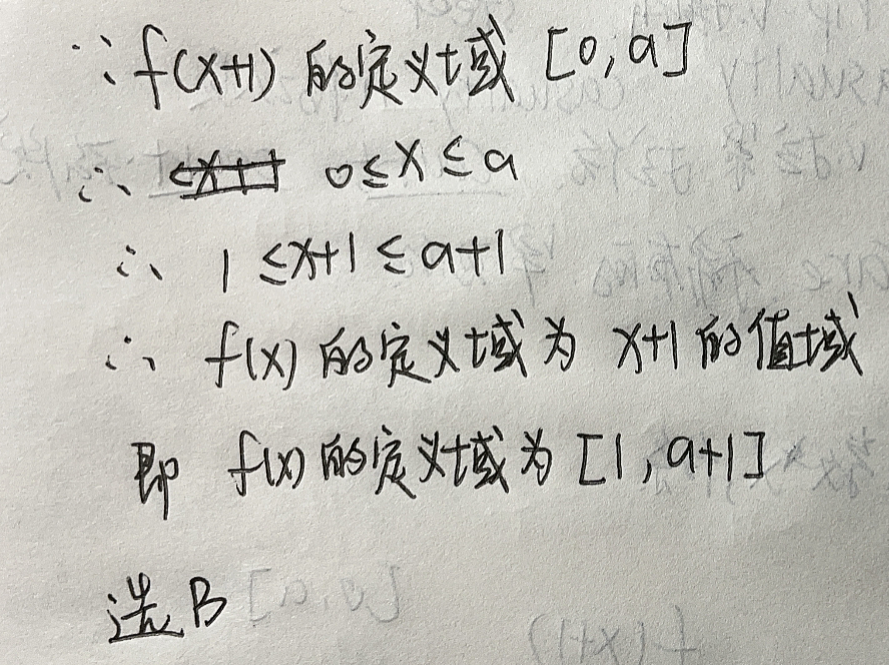 ∵ f(x+1) 的定义域 [0, a]
∴ 0≤x≤a
∴ 1≤x+1≤a+1
∴ f(x) 的定义域为 x+1 的值域
即 f(x) 的定义域为 [1, a+1]
选B